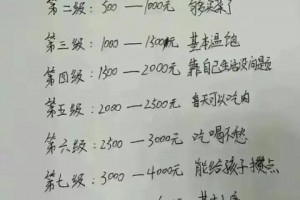 第二级：500 — 1000元
第三级：1000 — 1500元 基本温饱
第四级：1500 — 2000元 靠自己生活没问题
第五级：2000 — 2500元 每天可以吃肉
第六级：2500 — 3000元 吃喝不愁
第七级：3000 — 4000元 能给孩子攒点